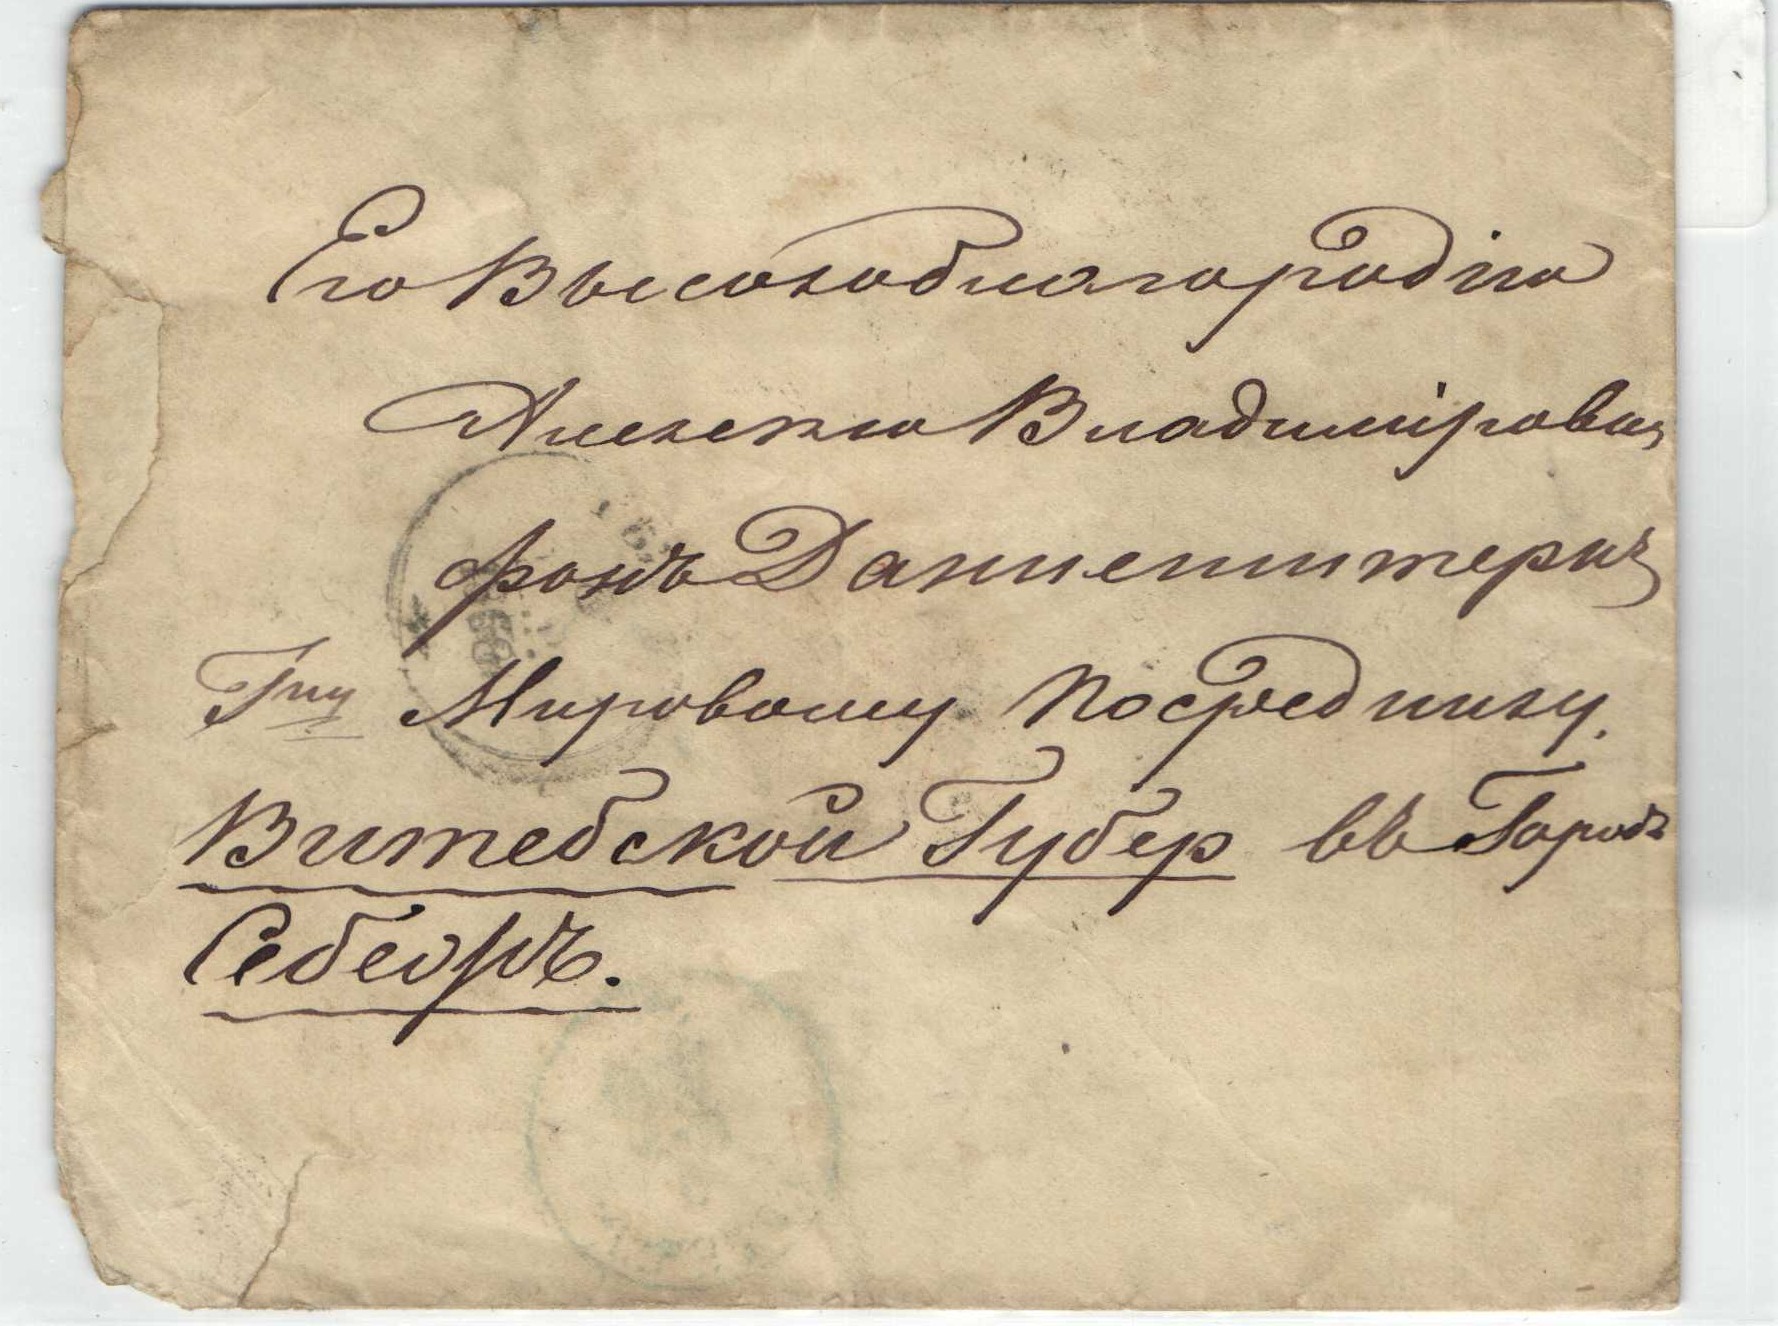 Его Высокоблагородію
Алексѣю Владиміровичу
фонъ Данненштернъ
Гну Мировому Посреднику.
Витебской Губер въ Городъ
Себежъ.